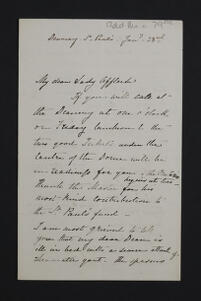 Deanery St. Paul's Jan. 28th
My dear Lady Affleck
If you will call at
the Deanery at one o'clock
on Friday luncheon & the
two good tickets under the
centre of the Dome will be
in readiness for you
thank the Master for his
most kind contribution to
the St. Paul's fund –
I am most grieved to tell
you that my dear Dean is
ill in bed with a severe attack of
rheumatic gout. The spasms